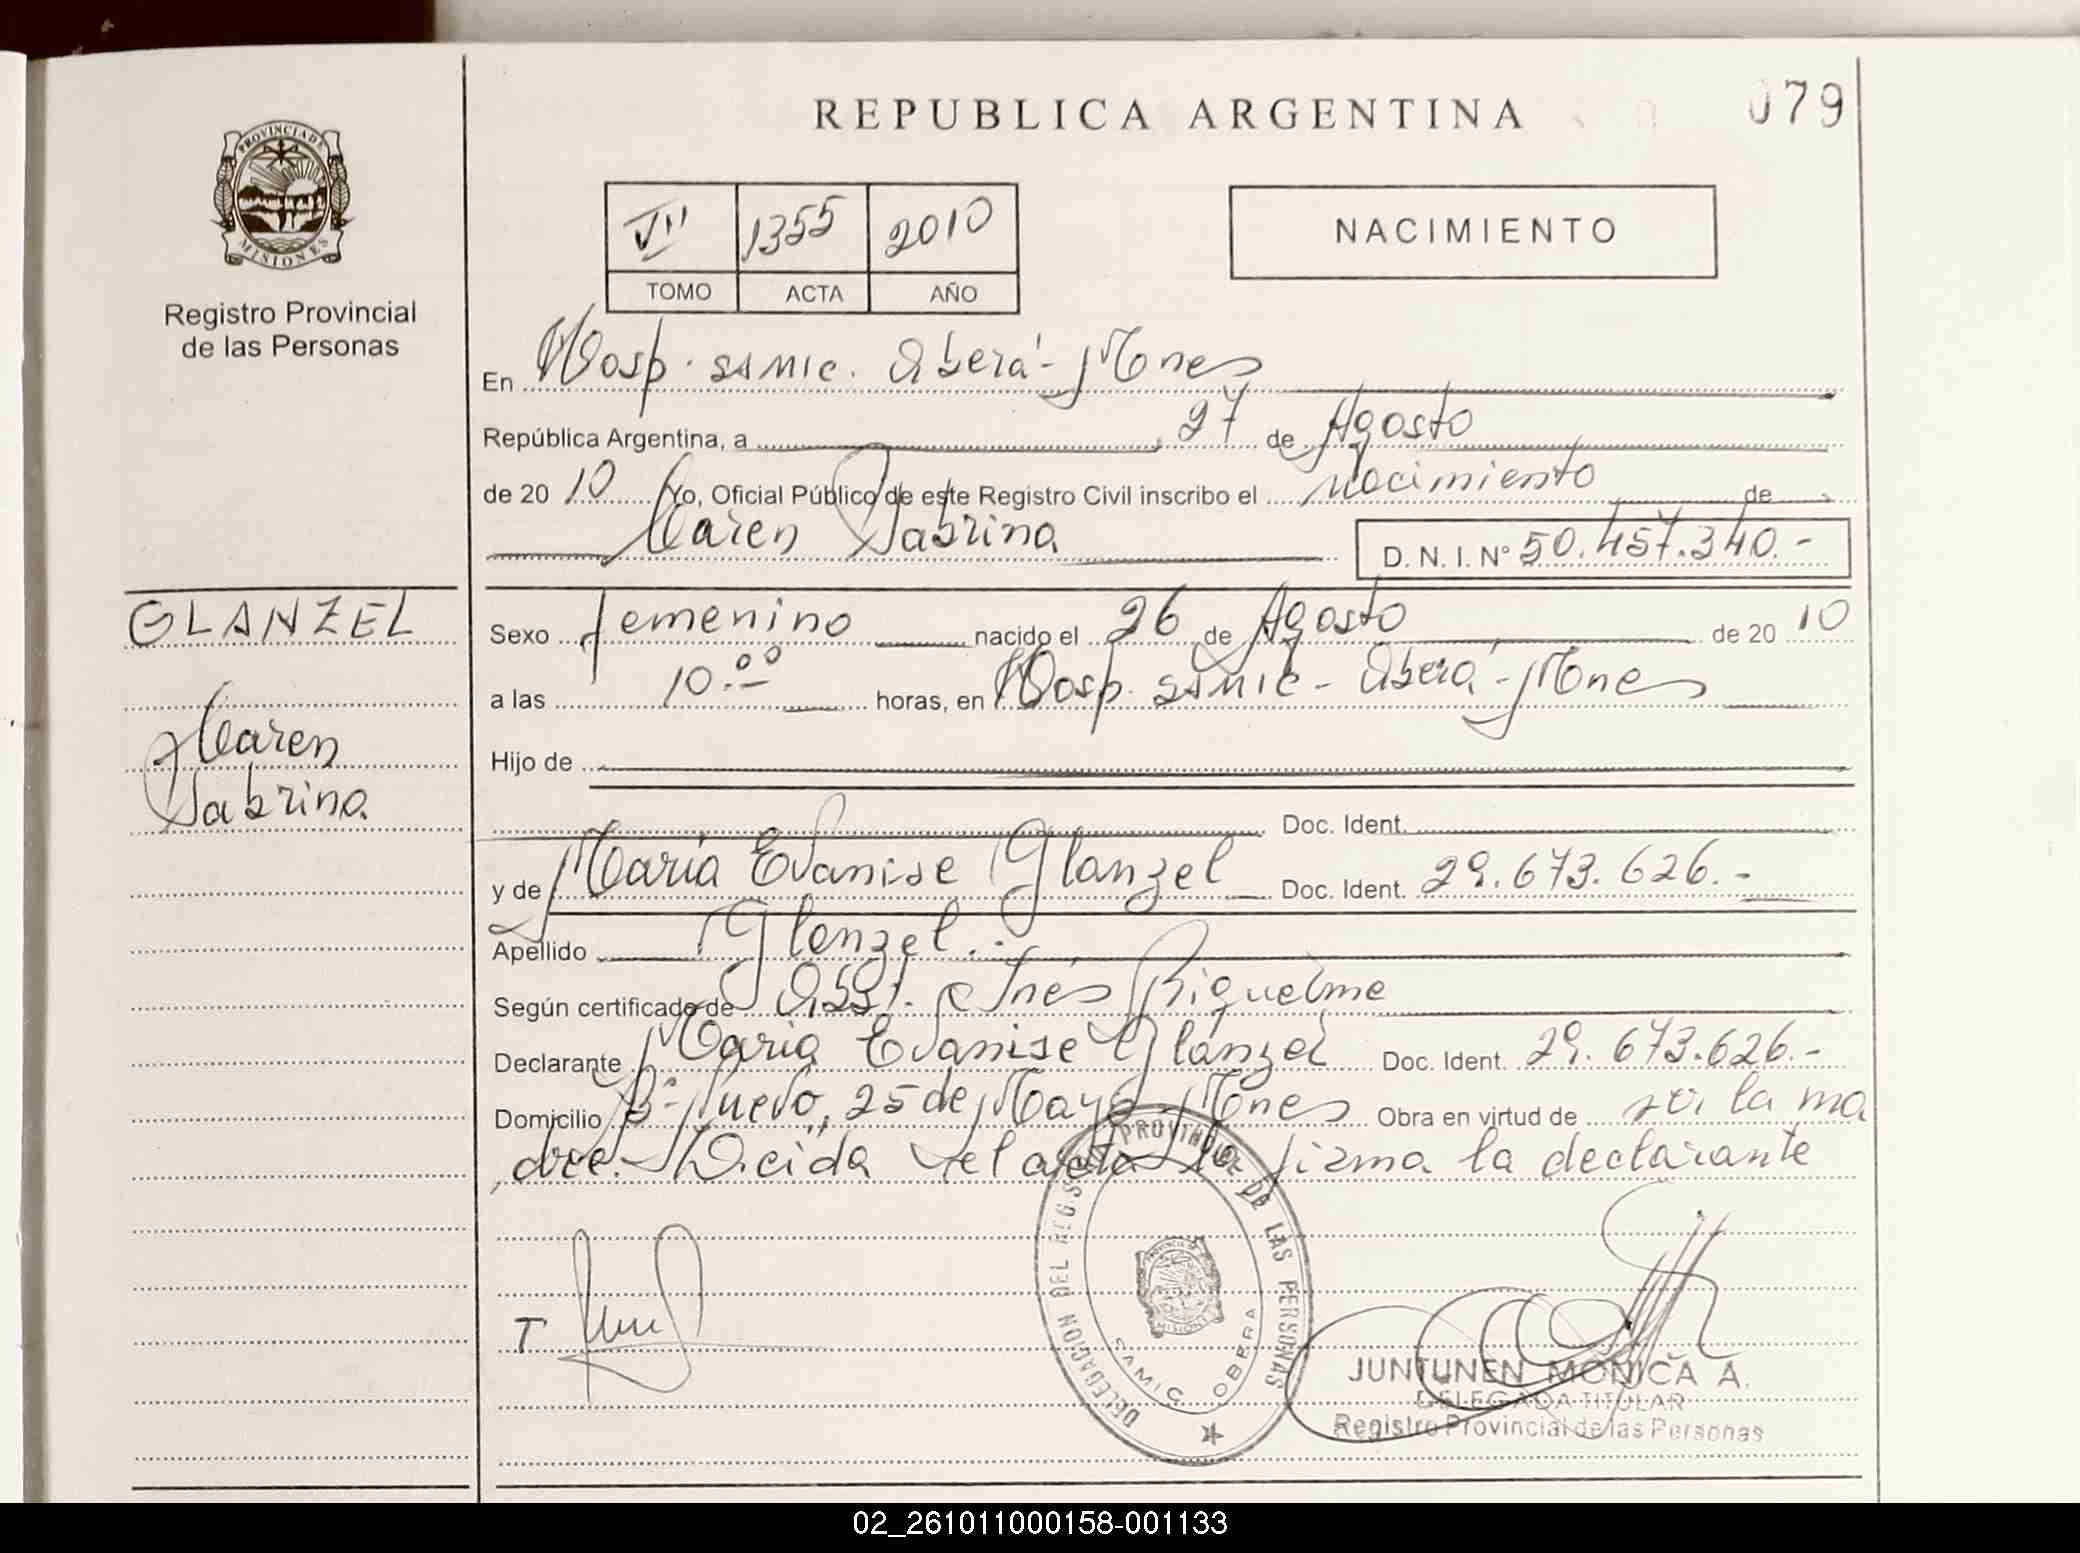 REPUBLICA ARGENTINA
079
PROVINCIA DE
MISIONES
Registro Provincial
de las Personas
1355 2010
TOMO ACTA AÑO
NACIMIENTO
En Hosp. SAMIC. Oberá - Mnes
República Argentina, a 27 de Agosto
de 20 10 Yo, Oficial Público de este Registro Civil inscribo el Nacimiento de
Karen Sabrina
D. N. I. N° 50.457.340.-
GLANZEL
Karen
Sabrina
Sexo Femenino nacido el 26 de Agosto de 20 10
a las 10.00 horas, en Hosp. SAMIC - Oberá - Mnes
Hijo de
Doc. Ident.
y de María Evanise Glanzel Doc. Ident. 29.673.626.-
Apellido Glanzel.
Según certificado de Obst. Inés Riquelme
Declarante María Evanise Glanzel Doc. Ident. 29.673.626.-
Domicilio Bº Nuevo, 25 de Mayo Mnes Obra en virtud de ser la ma
dre. Leída el acta firma la declarante
DELEGACION DEL REG. PROVINCIAL DE LAS PERSONAS
PROVINCIA DE
MISIONES
SAMIC OBERA
T
JUNTUNEN MONICA A.
DELEGADA TITULAR
Registro Provincial de las Personas
02_261011000158-001133